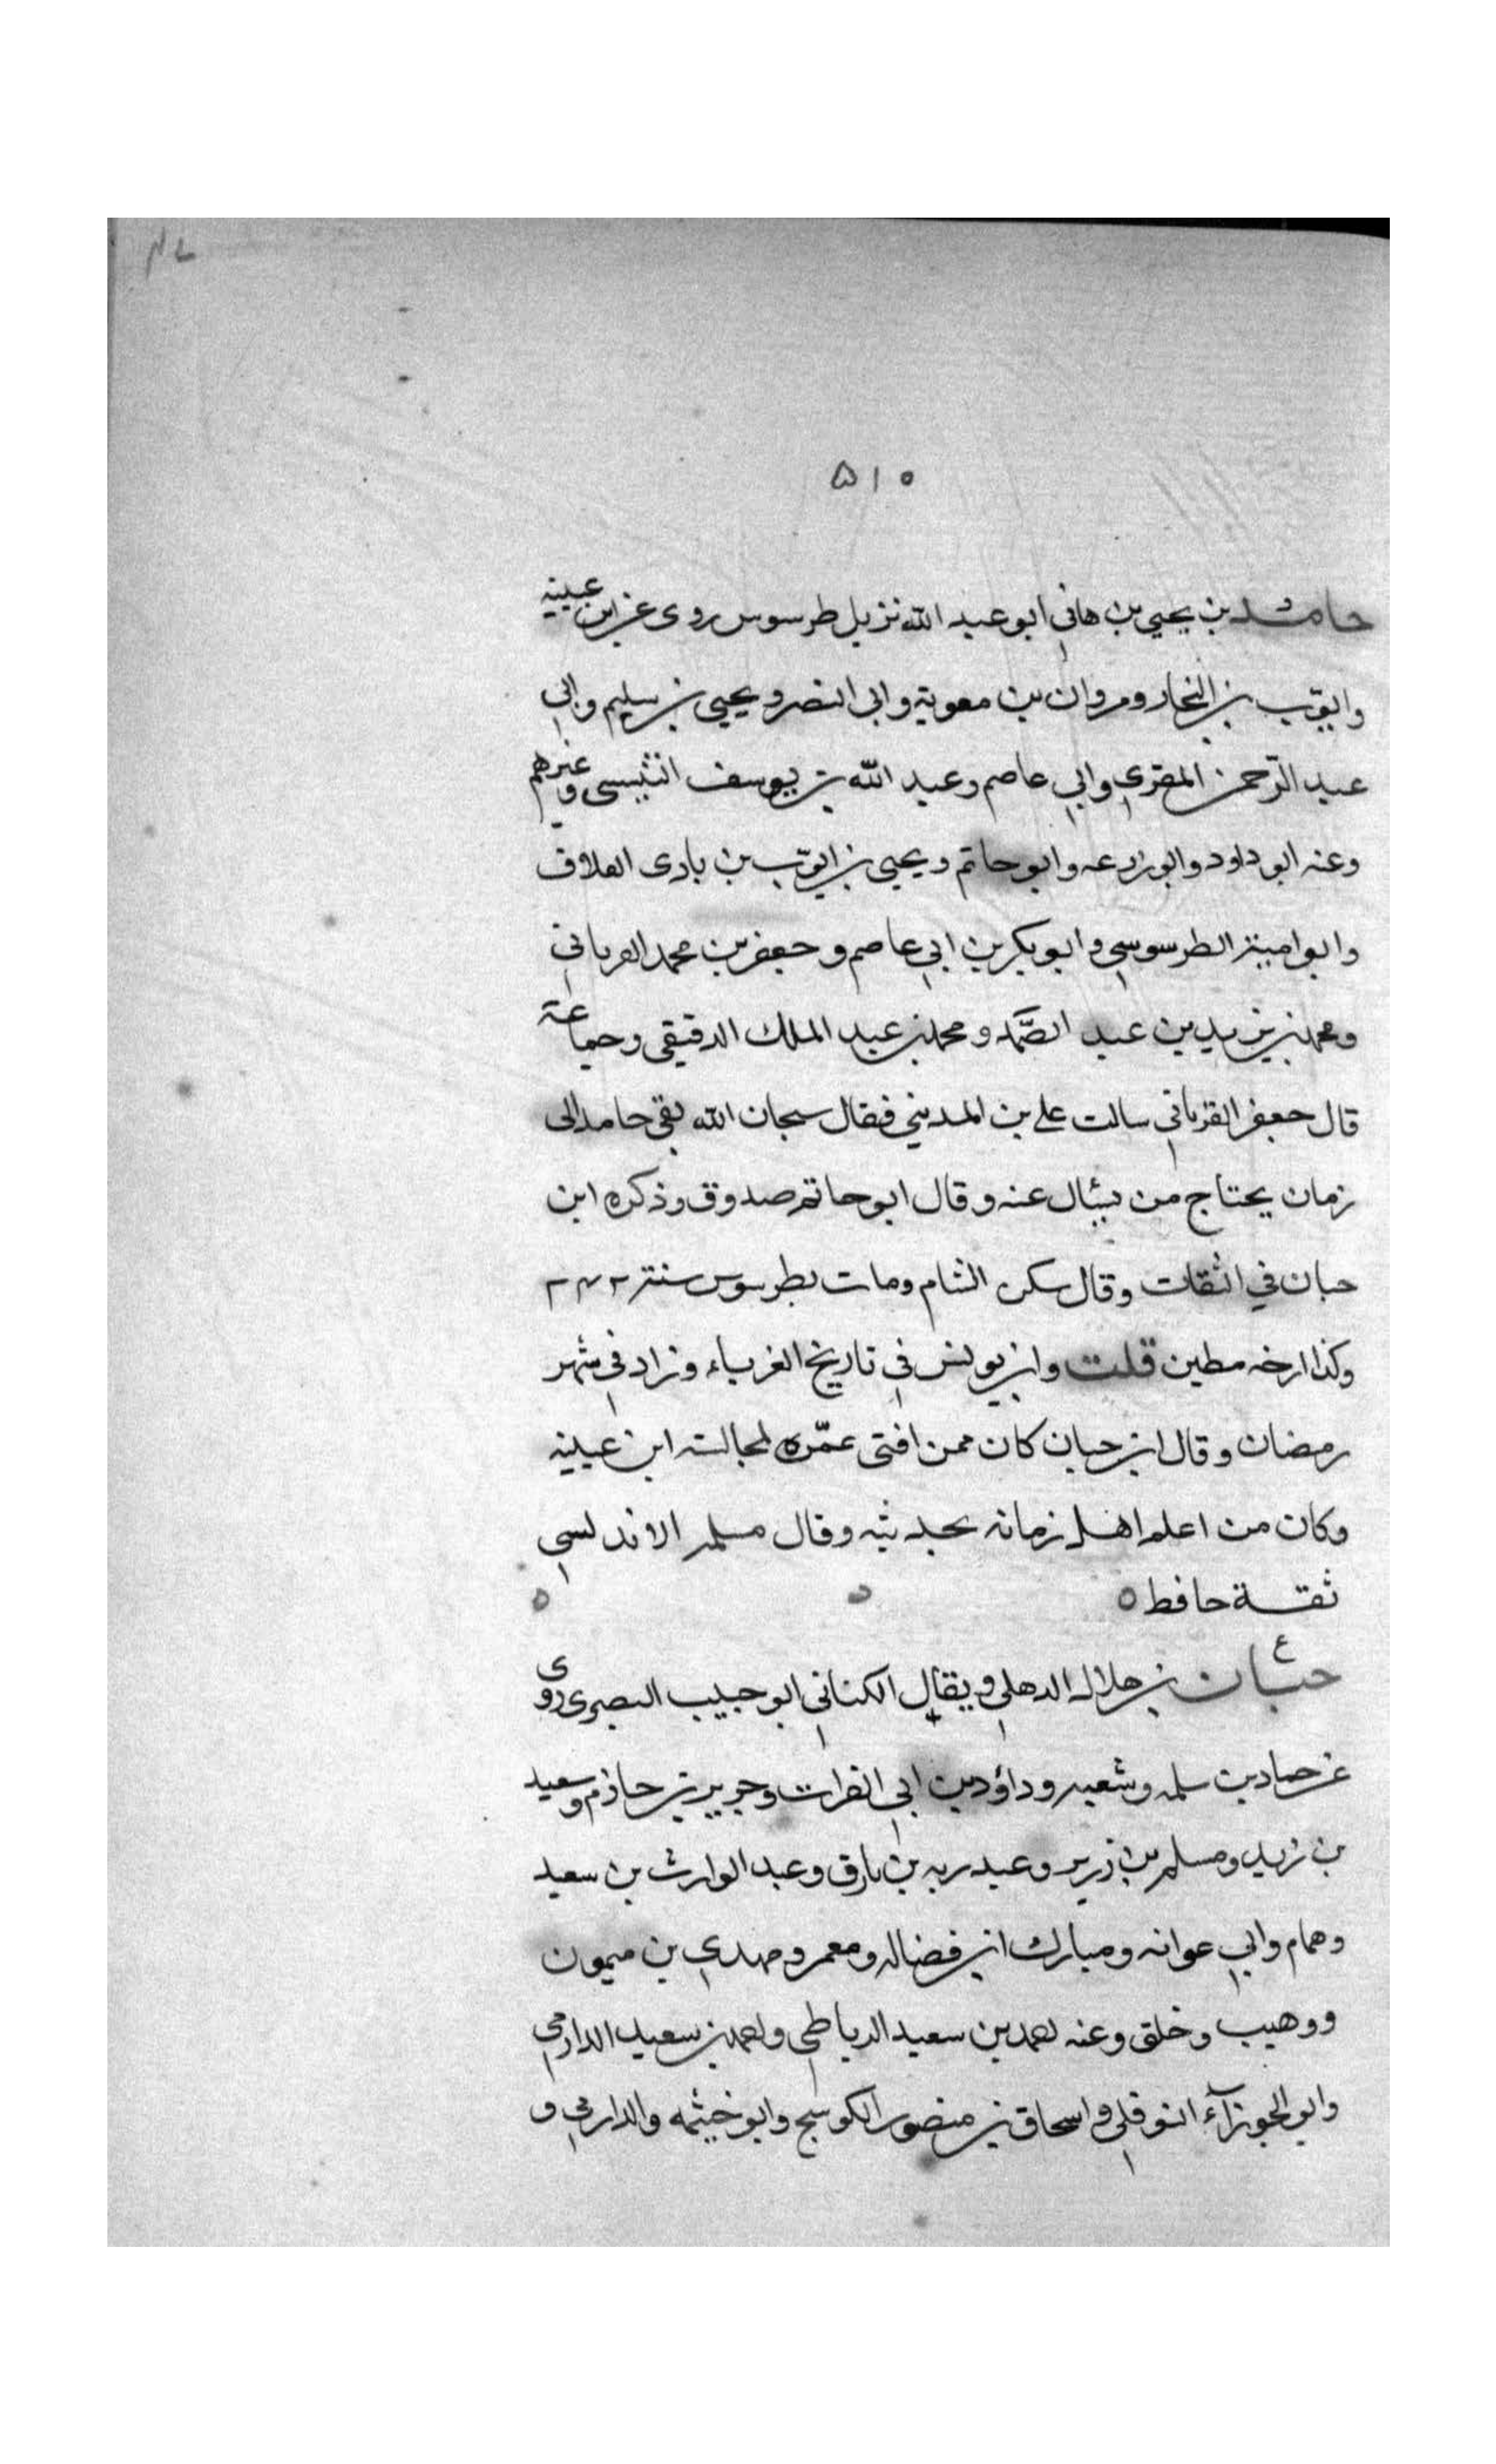 ۵۱۰
حامد بن يحيى بن هاني ابو عبد الله نزيل طرسوس روى عن ابن عيينه
وايوب بن النجار ومروان بن معوية وابى النضر ويحيى بن سليم وابي
عبد الرحمن المقري وابي عاصم وعبد الله بن يوسف التنيسى وغيرهم
وعنه ابو داود وابو زرعه وابو حاتم ويحيى بن ايوب بن بادى العلاف
وابو امية الطرسوسي وابو بكر بن ابي عاصم وجعفر بن محمد الفرياني
ومحمد بن يزيد بن عبد الصمد ومحمد بن عبد الملك الدقيقى وجماعة
قال جعفر الفرياني سالت علي بن المديني فقال سبحان الله بقي حامد الى
زمان يحتاج من يسئال عنه وقال ابو حاتم صدوق وذكره ابن
حبان في الثقات وقال سكن الشام ومات بطرسوس سنة ۲۴۲
وكذا ارخه مطين قلت وابن يونس في تاريخ الغرباء وزاد في شهر
رمضان وقال ابن حبان كان ممن افتى عمره لمجالسته ابن عيينه
وكان من اعلم اهل زمانه بحديثه وقال مسلمه الاندلسي
ثقة حافظ ه ه ه
ع
حبان بن هلال الدهلي ويقال الكناني ابو حبيب البصري روى
عن حماد بن سلمه وشعبه وداؤد بن ابي الفرات وجرير بن حازم وسعيد
بن زيد ومسلم بن زرير وعبد ربه بن بارق وعبد الوارث بن سعيد
وهمام وابي عوانه ومبارك ابن فضاله ومعمر ومهدي بن ميمون
ووهيب وخلق وعنه احمد بن سعيد الرباطي واحمد بن سعيد الدارمي
وابو الجوزآء النوفلي واسحاق بن منصور الكوسج وابو خيثمه والدارمي و